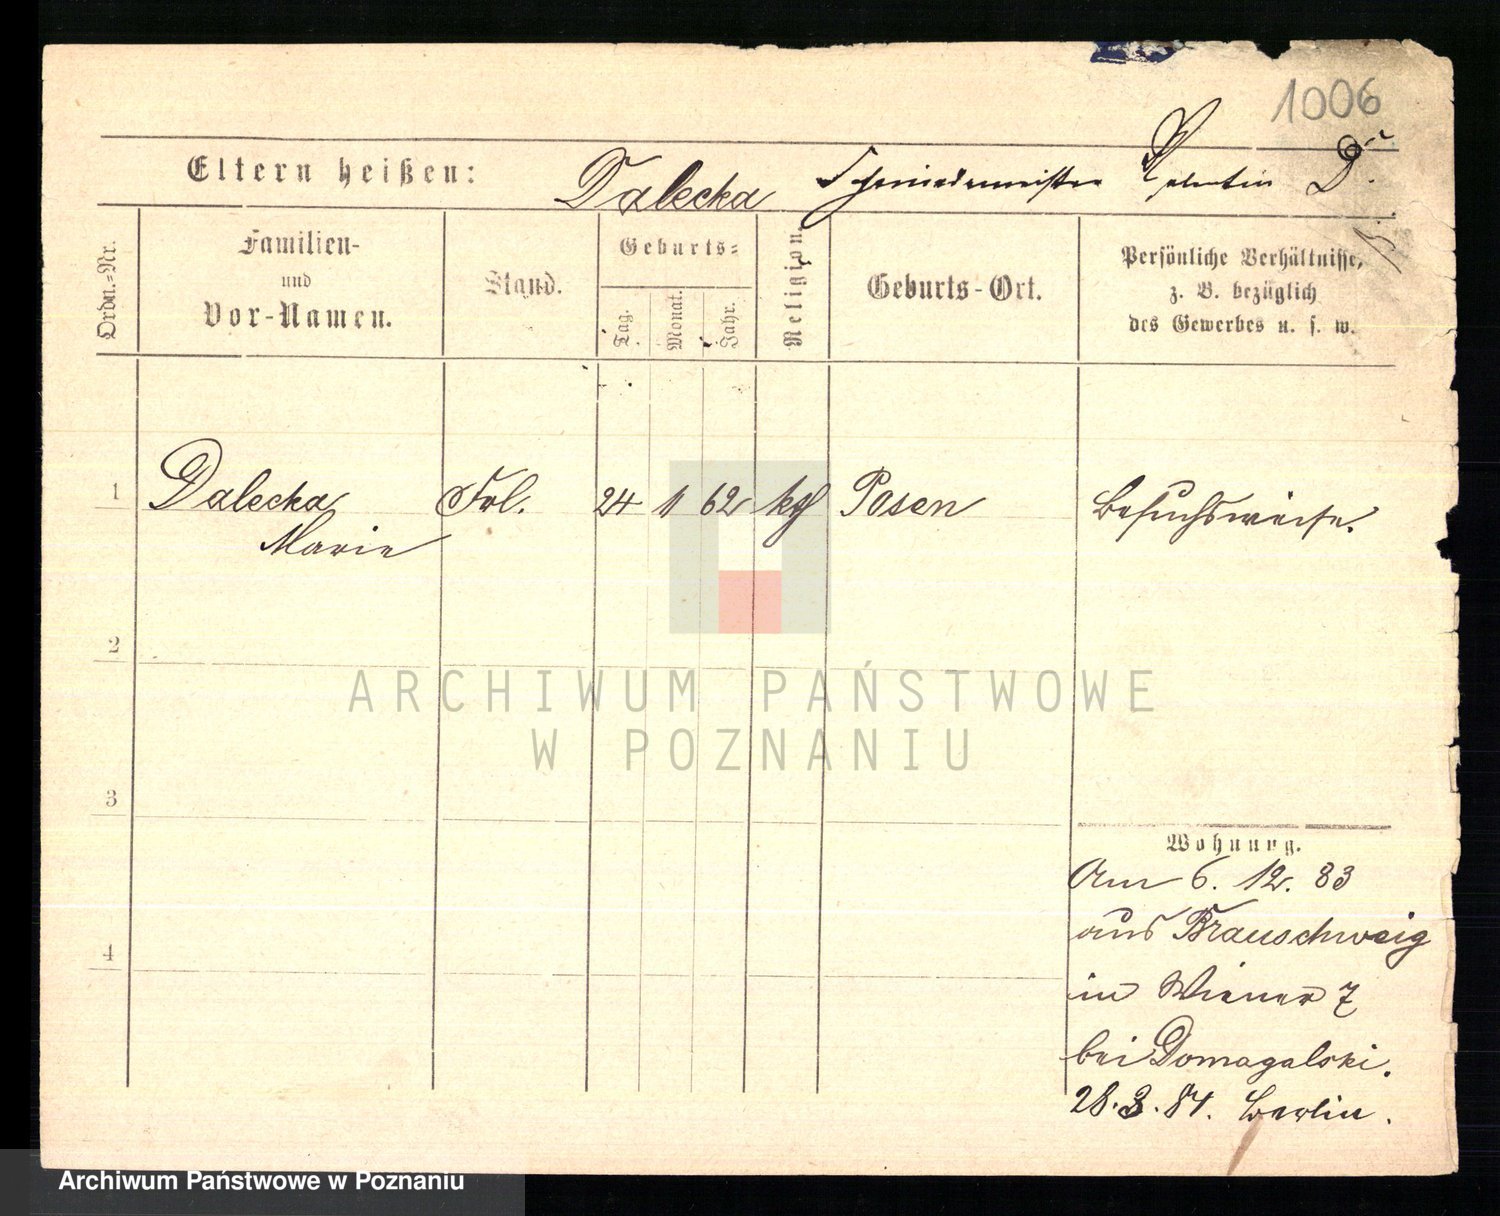 1006
Eltern heißen: Dalecka Schmiedemeister Valentin D.
Ordn.-Nr.
Familien- und Vor-Namen.
Stand.
Geburts-
Tag. Monat. Jahr.
Religion.
Geburts-Ort.
Persönliche Verhältnisse, z. B. bezüglich des Gewerbes u. s. w.
1 Dalecka Frl. 24 1 62 kth Posen Besuchsweise.
Marie
2
3
4
Wohnung.
Am 6. 12. 83
aus Brauschweig
in Wiener 7
bei Domagalski.
28.3.84. Berlin.
ARCHIWUM PAŃSTWOWE
W POZNANIU
Archiwum Państwowe w Poznaniu